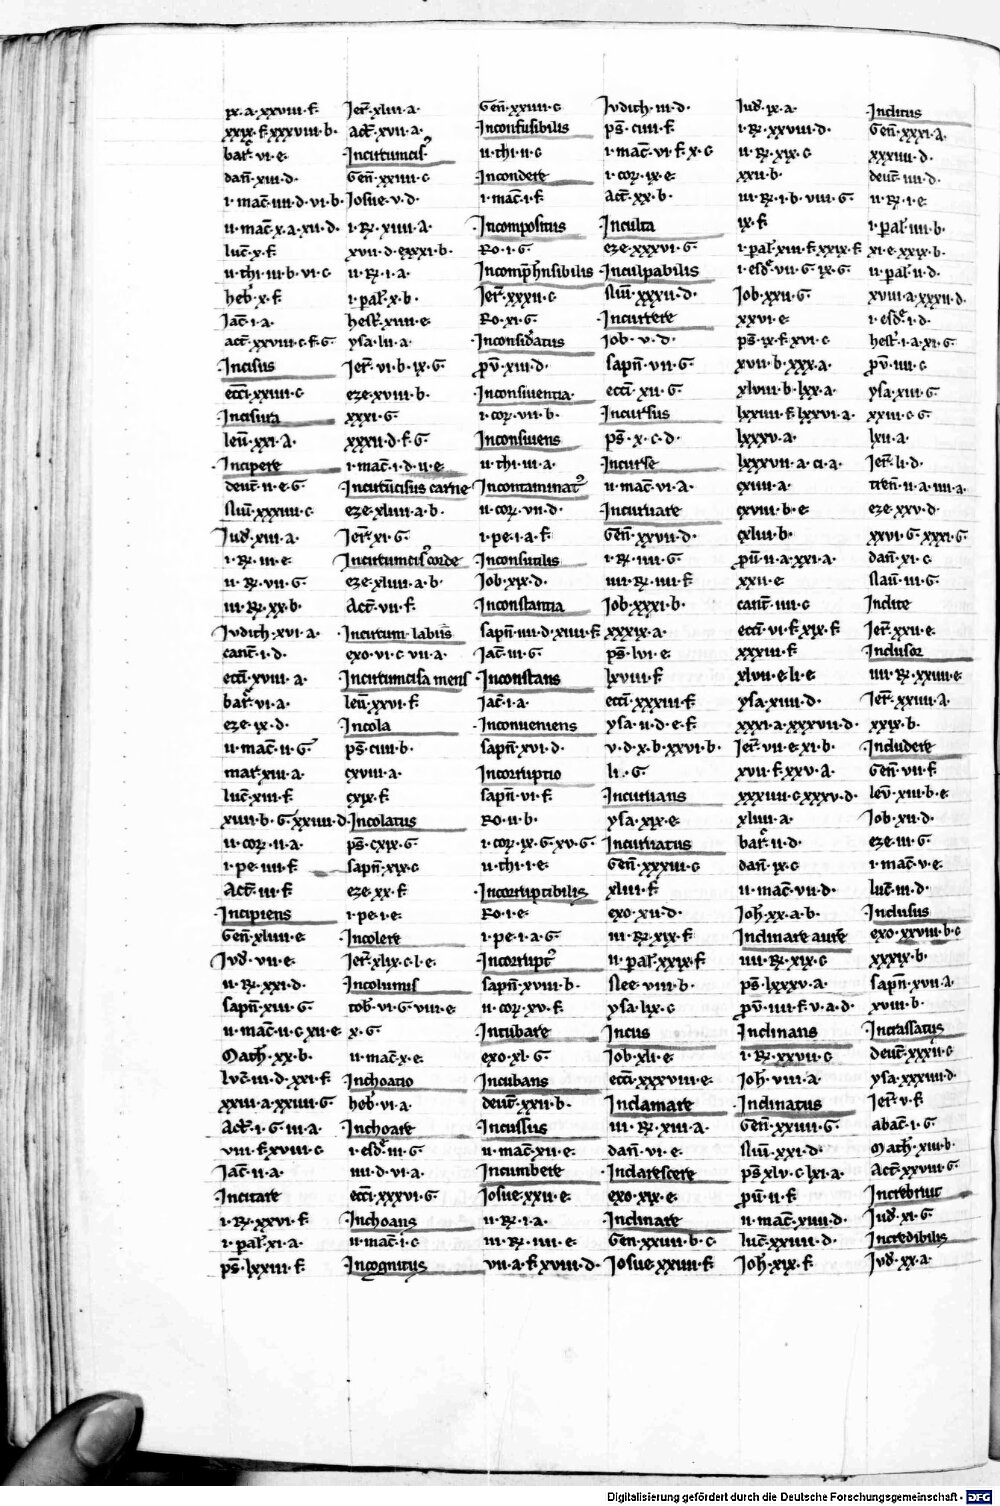 ix·a·xxviii·f·
xxix·f·xxxviii·b·
bar̃·vi·e·
dañ·xiii·d·
i·mac̃·iiii·d·vi·b·
ii·mac̃·x·a·xii·d·
luc̃·x·f·
ii·thi·iii·b·vi·c
heb̃·x·f·
Jac̃·i·a·
act̃·xxviii·c·f·G·
Incisus
ecc̃i·xxiiii·c
Incisura
leũ·xxi·a·
Incipere
deut̃·ii·e·G·
Nũ·xxxiiii·c
Jud̃·xiii·a·
i·R̃·iii·e·
ii·R̃·vii·G·
iii·R̃·xx·b·
Judith·xvi·a·
cant̃·i·d·
ecc̃i·xviii·a·
bar̃·vi·a·
eze·ix·d·
ii·mac̃·ii·G·
mar̃·xiii·a·
luc̃·xiii·f·
xiiii·b·G·xxiiii·d·
ii·cor̃·ii·a·
i·pe·iiii·f·
Act̃·iii·f·
Incipiens
Geñ·xliiii·e·
Jud̃·vii·e·
ii·R̃·xxi·d·
sapñ·xiii·G·
ii·mac̃·ii·c·xii·e·
Math̃·xx·b·
luc̃·iii·d·xxi·f·
xxiii·a·xxiiii·G·
Act̃·i·G·iii·a·
viii·f·xviii·c
Jac̃·ii·a·
Incitare
i·R̃·xxvi·f·
i·pal̃·xi·a·
ps̃·lxxiii·f·
Jer̃·xliii·a·
act̃·xvii·a·
Incircumcis9
Geñ·xxiiii·c
Josue·v·d·
i·R̃·xiiii·a·
xvii·d·exxxi·b·
ii·R̃·i·a·
i·pal̃·x·b·
hest̃·xiiii·e·
ysa·lii·a·
Jer̃·vi·b·ix·G·
eze·xviii·b·
xxxi·G·
xxxii·d·f·G·
i·mac̃·i·d·ii·e·
Incircũcisus carne
eze·xliiii·a·b·
Jer̃·xi·G·
Incircumcis9 corde
eze·xliiii·a·b·
Act̃·vii·f·
Incircum·labiis
exo·vi·c·vii·a·
Incircumcisa mens
leũ·xxvi·f·
Incola
ps̃·ciiii·b·
cxviii·a·
cxix·f·
Incolatus
ps̃·cxix·G·
sapñ·xix·c
eze·xx·f·
i·pe·i·e·
Incolere
Jer̃·xlix·c·l·e·
Incolumis
tob̃·vi·G·viii·e·
x·G·
ii·mac̃·x·e·
Inchoatio
heb̃·vi·a·
Inchoare
i·esd̃·iii·G·
iiii·d·vi·a·
ecc̃i·xxxvi·G·
Inchoans
ii·mac̃·i·c
Incognitus
Geñ·xxiiii·c
Inconfusibilis
ii·thi·ii·c
Incondere
i·mac̃·i·f·
Incompositus
Ro·i·G·
Incomp̃hensibilis
Jer̃·xxxii·c
Ro·xi·G·
Inconsid̃atus
ꝓṽ·xiii·d·
Inconsiuentia
i·cor̃·vii·b·
Inconsiuens
ii·thi·iii·a·
Incontaminat9
ii·cor̃·vii·d·
i·pe·i·a·f·
Inconsutilis
Job·xix·d·
Inconstantia
sapñ·iiii·d·xiiii·f·
Jac̃·iii·G·
Inconstans
Jac̃·i·a·
Inconueniens
sapñ·xvi·d·
Incorruptio
sapñ·vi·f·
Ro·ii·b·
i·cor̃·ix·G·xv·G·
ii·thi·i·e·
Incorruptibilis
Ro·i·e·
i·pe·i·a·G·
Incorrupt9
sapñ·xviii·b·
ii·cor̃·xv·f·
Incubare
exo·xl·G·
Incubans
deut̃·xxii·b·
Incussus
ii·mac̃·xii·e·
Incumbere
Josue·xxii·e·
ii·R̃·i·a·
iii·R̃·iiii·e·
vii·a·f·xviii·d·
Judith·iii·d·
ps̃·ciiii·f·
i·mac̃·vi·f·x·c
i·cor̃·ix·e·
Act̃·xx·b·
Inculta
eze·xxxvi·G·
Inculpabilis
Nũ·xxxii·d·
Incurrere
Job·v·d·
sapñ·vii·G·
ecc̃i·xii·G·
Incursus
ps̃·x·c·d·
Incurse
ii·mac̃·vi·a·
Incuruare
Geñ·xxvii·d·
i·R̃·iiii·G·
iiii·R̃·iiii·f·
Job·xxxi·b·
xxxix·a·
ps̃·lvi·e·
lxviii·f·
ecc̃i·xxxiii·f·
ysa·ii·d·e·f·
v·d·x·b·xxvi·b·
li·G·
Incuruans
ysa·xix·e·
Incuruatus
Geñ·xxxiii·c
xliii·f·
exo·xii·d·
iii·R̃·xix·f·
ii·pal̃·xxix·f·
Nee·viii·b·
ysa·lix·c
Incus
Job·xli·e·
ecc̃i·xxxviii·e·
Inclamare
iii·R̃·xiii·a·
dañ·vi·e·
Inclarescere
exo·xix·e·
Inclinare
Geñ·xxiiii·b·c
Josue·xxiiii·f·
Jud̃·ix·a·
i·R̃·xxviii·d·
ii·R̃·xix·c
xxii·b·
iii·R̃·i·b·viii·G·
ix·f·
i·pal̃·xiii·f·xxix·f·
i·esd̃·vii·G·ix·G·
Job·xxii·G·
xxvi·e·
ps̃·ix·f·xvi·c
xvii·b·xxx·a·
xlviii·b·lxx·a·
lxxiiii·f·lxxvi·a·
lxxxv·a·
lxxxvii·a·ci·a·
cxiiii·a·
cxviii·b·e·
cxliii·b·
ꝓũ·ii·a·xxi·a·
xxii·e·
cant̃·iiii·c
ecc̃i·vi·f·xix·f·
xxxiii·f·
xlvii·e·li·e·
ysa·xiiii·d·
xxxi·a·xxxvii·d·
Jer̃·vii·e·xi·b·
xvii·f·xxv·a·
xxxiiii·c·xxxv·d·
xliiii·a·
bar̃·ii·d·
dañ·ix·c
ii·mac̃·vii·d·
Joh̃·xx·a·b·
Inclinare aurẽ
iiii·R̃·xix·c
ps̃·lxxxv·a·
ꝓṽ·iiii·f·v·a·d·
Inclinans
i·R̃·xxvii·c
Joh̃·viii·a·
Inclinatus
Geñ·xxiiii·G·
Nũ·xxi·d·
ps̃·xlv·c·lxi·a·
ꝓũ·ii·f·
ii·mac̃·xiiii·d·
luc̃·xxiiii·d·
Joh̃·xix·f·
Inclitus
Geñ·xxxi·a·
xxxiiii·d·
deut̃·iiii·d·
ii·R̃·i·e·
i·pal̃·iiii·b·
xi·e·xxix·b·
ii·pal̃·ii·d·
xviii·a·xxxii·d·
i·esd̃·i·d·
hest̃·i·a·xi·G·
ꝓṽ·iiii·c
ysa·xiii·G·
xxiii·c·G·
lxii·a·
Jer̃·li·d·
treñ·ii·a·iiii·a·
eze·xxv·d·
xxvi·G·xxxi·G·
dañ·xi·c
Naũ·iii·G·
Inclite
Jer̃·xxii·e·
Inclusor
iiii·R̃·xxiiii·e·
Jer̃·xxiiii·a·
xxix·b·
Includere
Geñ·vii·f·
leṽ·xiii·b·e·
Job·xii·d·
eze·iii·G·
i·mac̃·v·e·
luc̃·iii·d·
Inclusus
exo·xxviii·b·c
xxxix·b·
sapñ·xvii·a·
xviii·b·
Incrassatus
deut̃·xxxii·c
ysa·xxxiiii·d·
Jer̃·v·f·
abac̃·i·G·
Math̃·xiii·b·
Act̃·xxviii·G·
Increbruit
Jud̃·xi·G·
Incredibilis
Jud̃·xx·a·
Digitalisierung gefördert durch die Deutsche Forschungsgemeinschaft - DFG